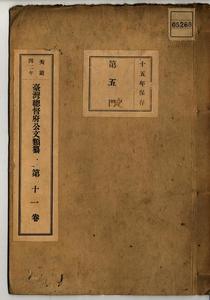 05268
十五年保存
第五門
明治
四一年
臺灣總督府公文類纂 第十一卷